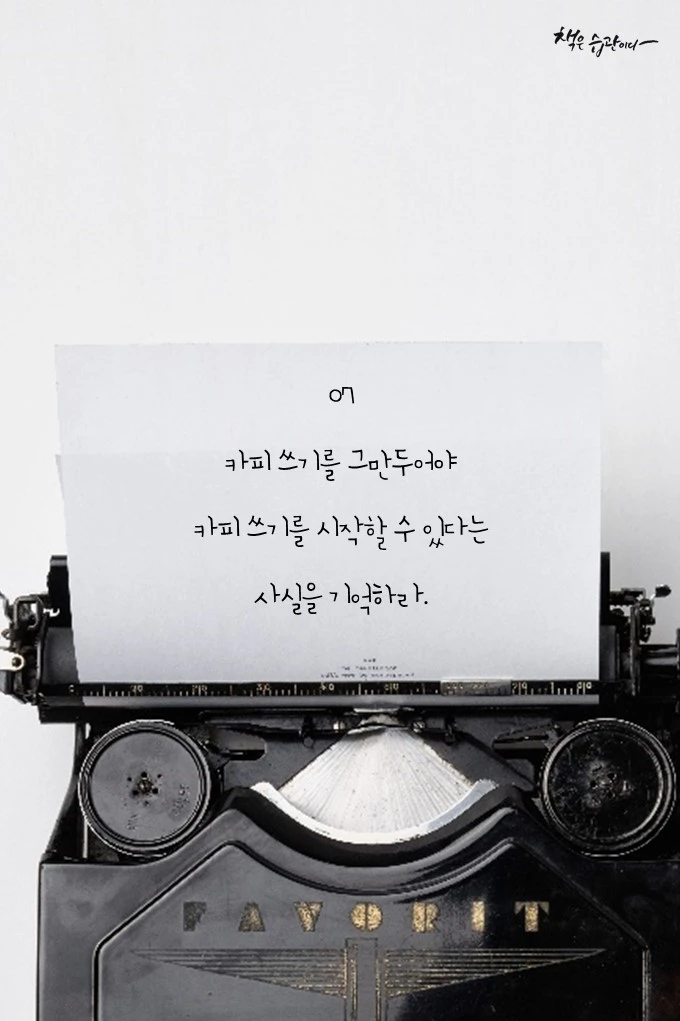 책은 습관이다
07
카피 쓰기를 그만두어야
카피 쓰기를 시작할 수 있다는
사실을 기억하라.
FAVORIT